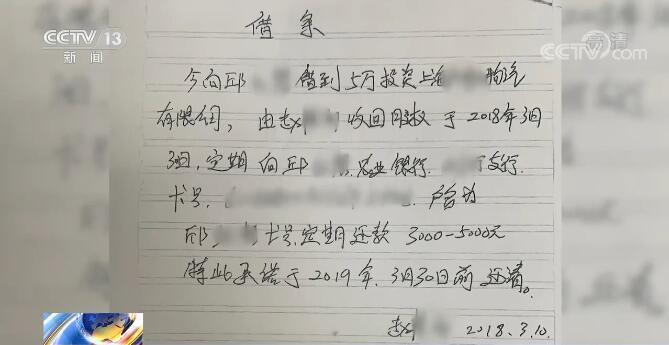 CCTV 13
新闻
CCTV.com 高清
借条
今向邱 借到5万投资上海 物流
有限公司，由赵 收回股权于2018年3月
3日，定期向邱 农业银行 支行
卡号 户名为
邱 卡号定期还款3000-5000元
特此承诺于2019年3月30日前还清。
赵 2018.3.10.